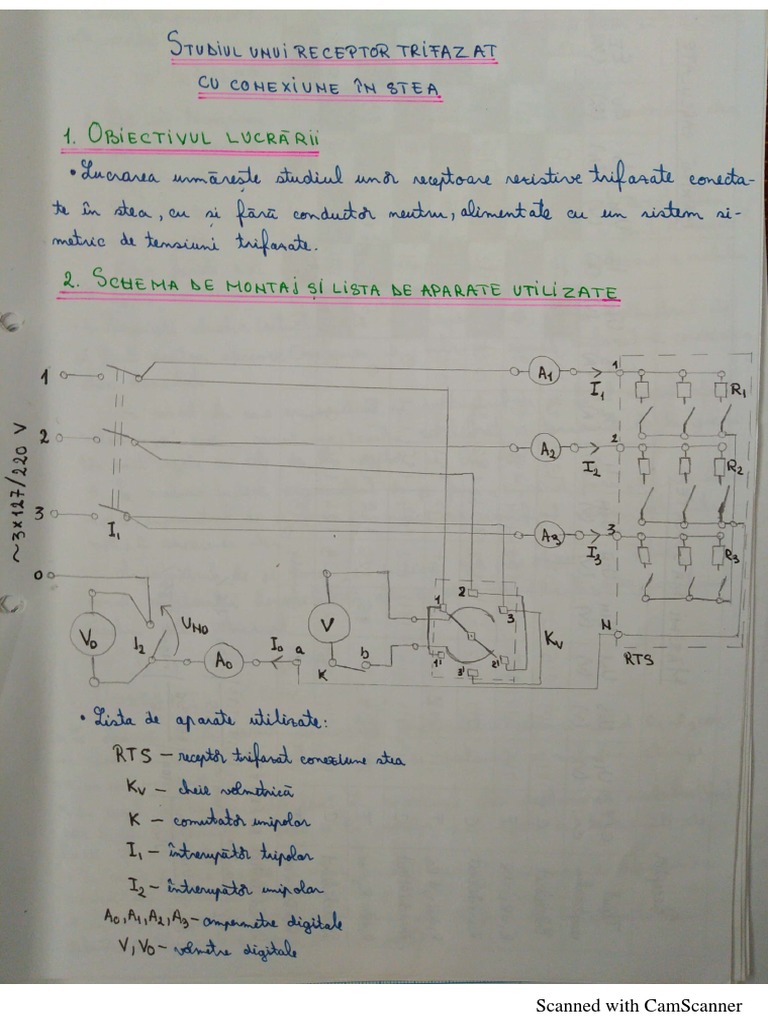 STUDIUL UNUI RECEPTOR TRIFAZAT
CU CONEXIUNE ÎN STEA
1. OBIECTIVUL LUCRĂRII
• Lucrarea urmărește studiul unor receptoare rezistive trifazate conecta-
te în stea, cu și fără conductor neutru, alimentate cu un sistem si-
metric de tensiuni trifazate.
2. SCHEMA DE MONTAJ ȘI LISTA DE APARATE UTILIZATE
1 A1 I1 1 R1
2 A2 I2 2 R2
3 I1 A3 I3 3 R3
~3x127/220 V
0
V0 I2 UN0 A0 I0 a K b V 1 2 3 1' 2' 3' KV N RTS
• Lista de aparate utilizate:
RTS – receptor trifazat conexiune stea
KV – cheie voltmetrică
K – comutator unipolar
I1 – întrerupător tripolar
I2 – întrerupător unipolar
A0, A1, A2, A3 – ampermetre digitale
V, V0 – voltmetre digitale
Scanned with CamScanner